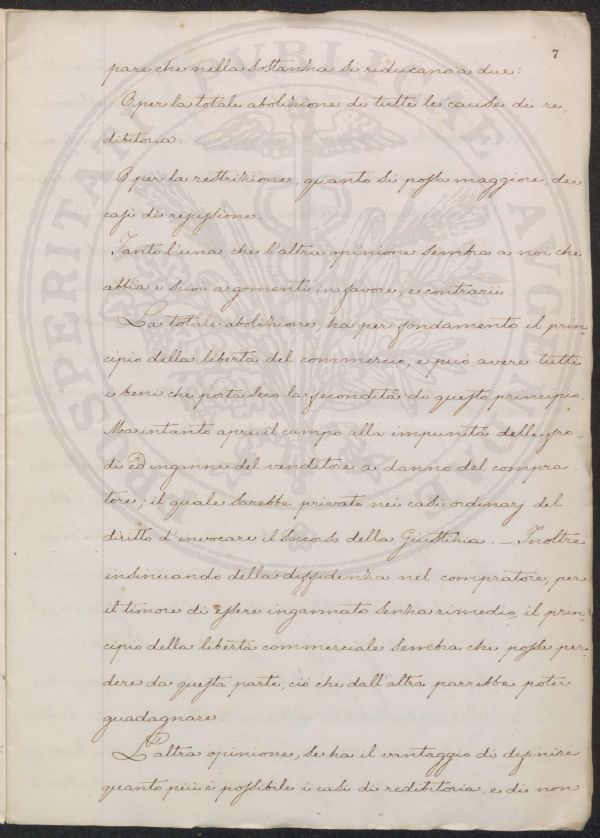 7
pare che nella sostanza si riducano a due:
O per la totale abolizione di tutte le cause di re-
dibitoria.
O per la restrizione, quanto si possa maggiore, dei
casi di rejussione.
Tanto l'una che l'altra opinione sembra a noi che
abbia i suoi argomenti in favore, e contrarii.
La totale abolizione, ha per fondamento il prin-
cipio della libertà del commercio, e può avere tutti
i beni che porta seco la fecondità di questo principio.
Ma intanto apre il campo alla impunità delle fro-
di ed inganni del venditore a danno del compra-
tore; il quale sarebbe privato nei casi ordinarj del
diritto d'invocare il soccorso della Giustizia. — Inoltre
insinuando della diffidenza nel compratore, per
il timore di essere ingannato senza rimedio, il prin-
cipio della libertà commerciale sembra che possa per-
dere da questa parte, ciò che dall'altra parrebbe poter
guadagnare.
L'altra opinione, se ha il vantaggio di definire
quanto più è possibile i casi di redibitoria, e di non
PROSPERITATI PUBLICAE AUGENDAE